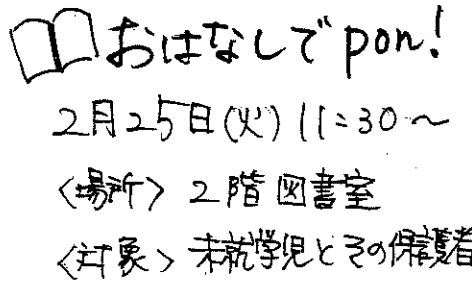 おはなしでpon!
2月25日(火) 11:30～
〈場所〉 2階図書室
〈対象〉未就学児とその保護者